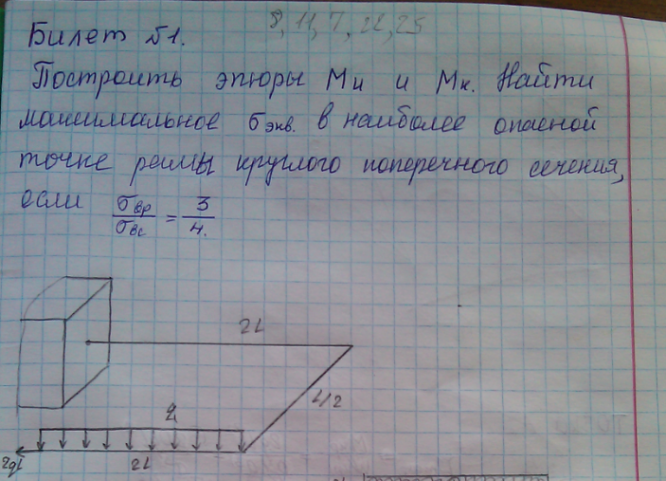 8, 11, 7, 22, 25
Билет №1.
Построить эпюры Ми и Мк. Найти
максимальное σэкв. в наиболее опасной
точке рамы круглого поперечного сечения,
если σвр/σвс = 3/4.
2L
L/2
q
2qL
2L